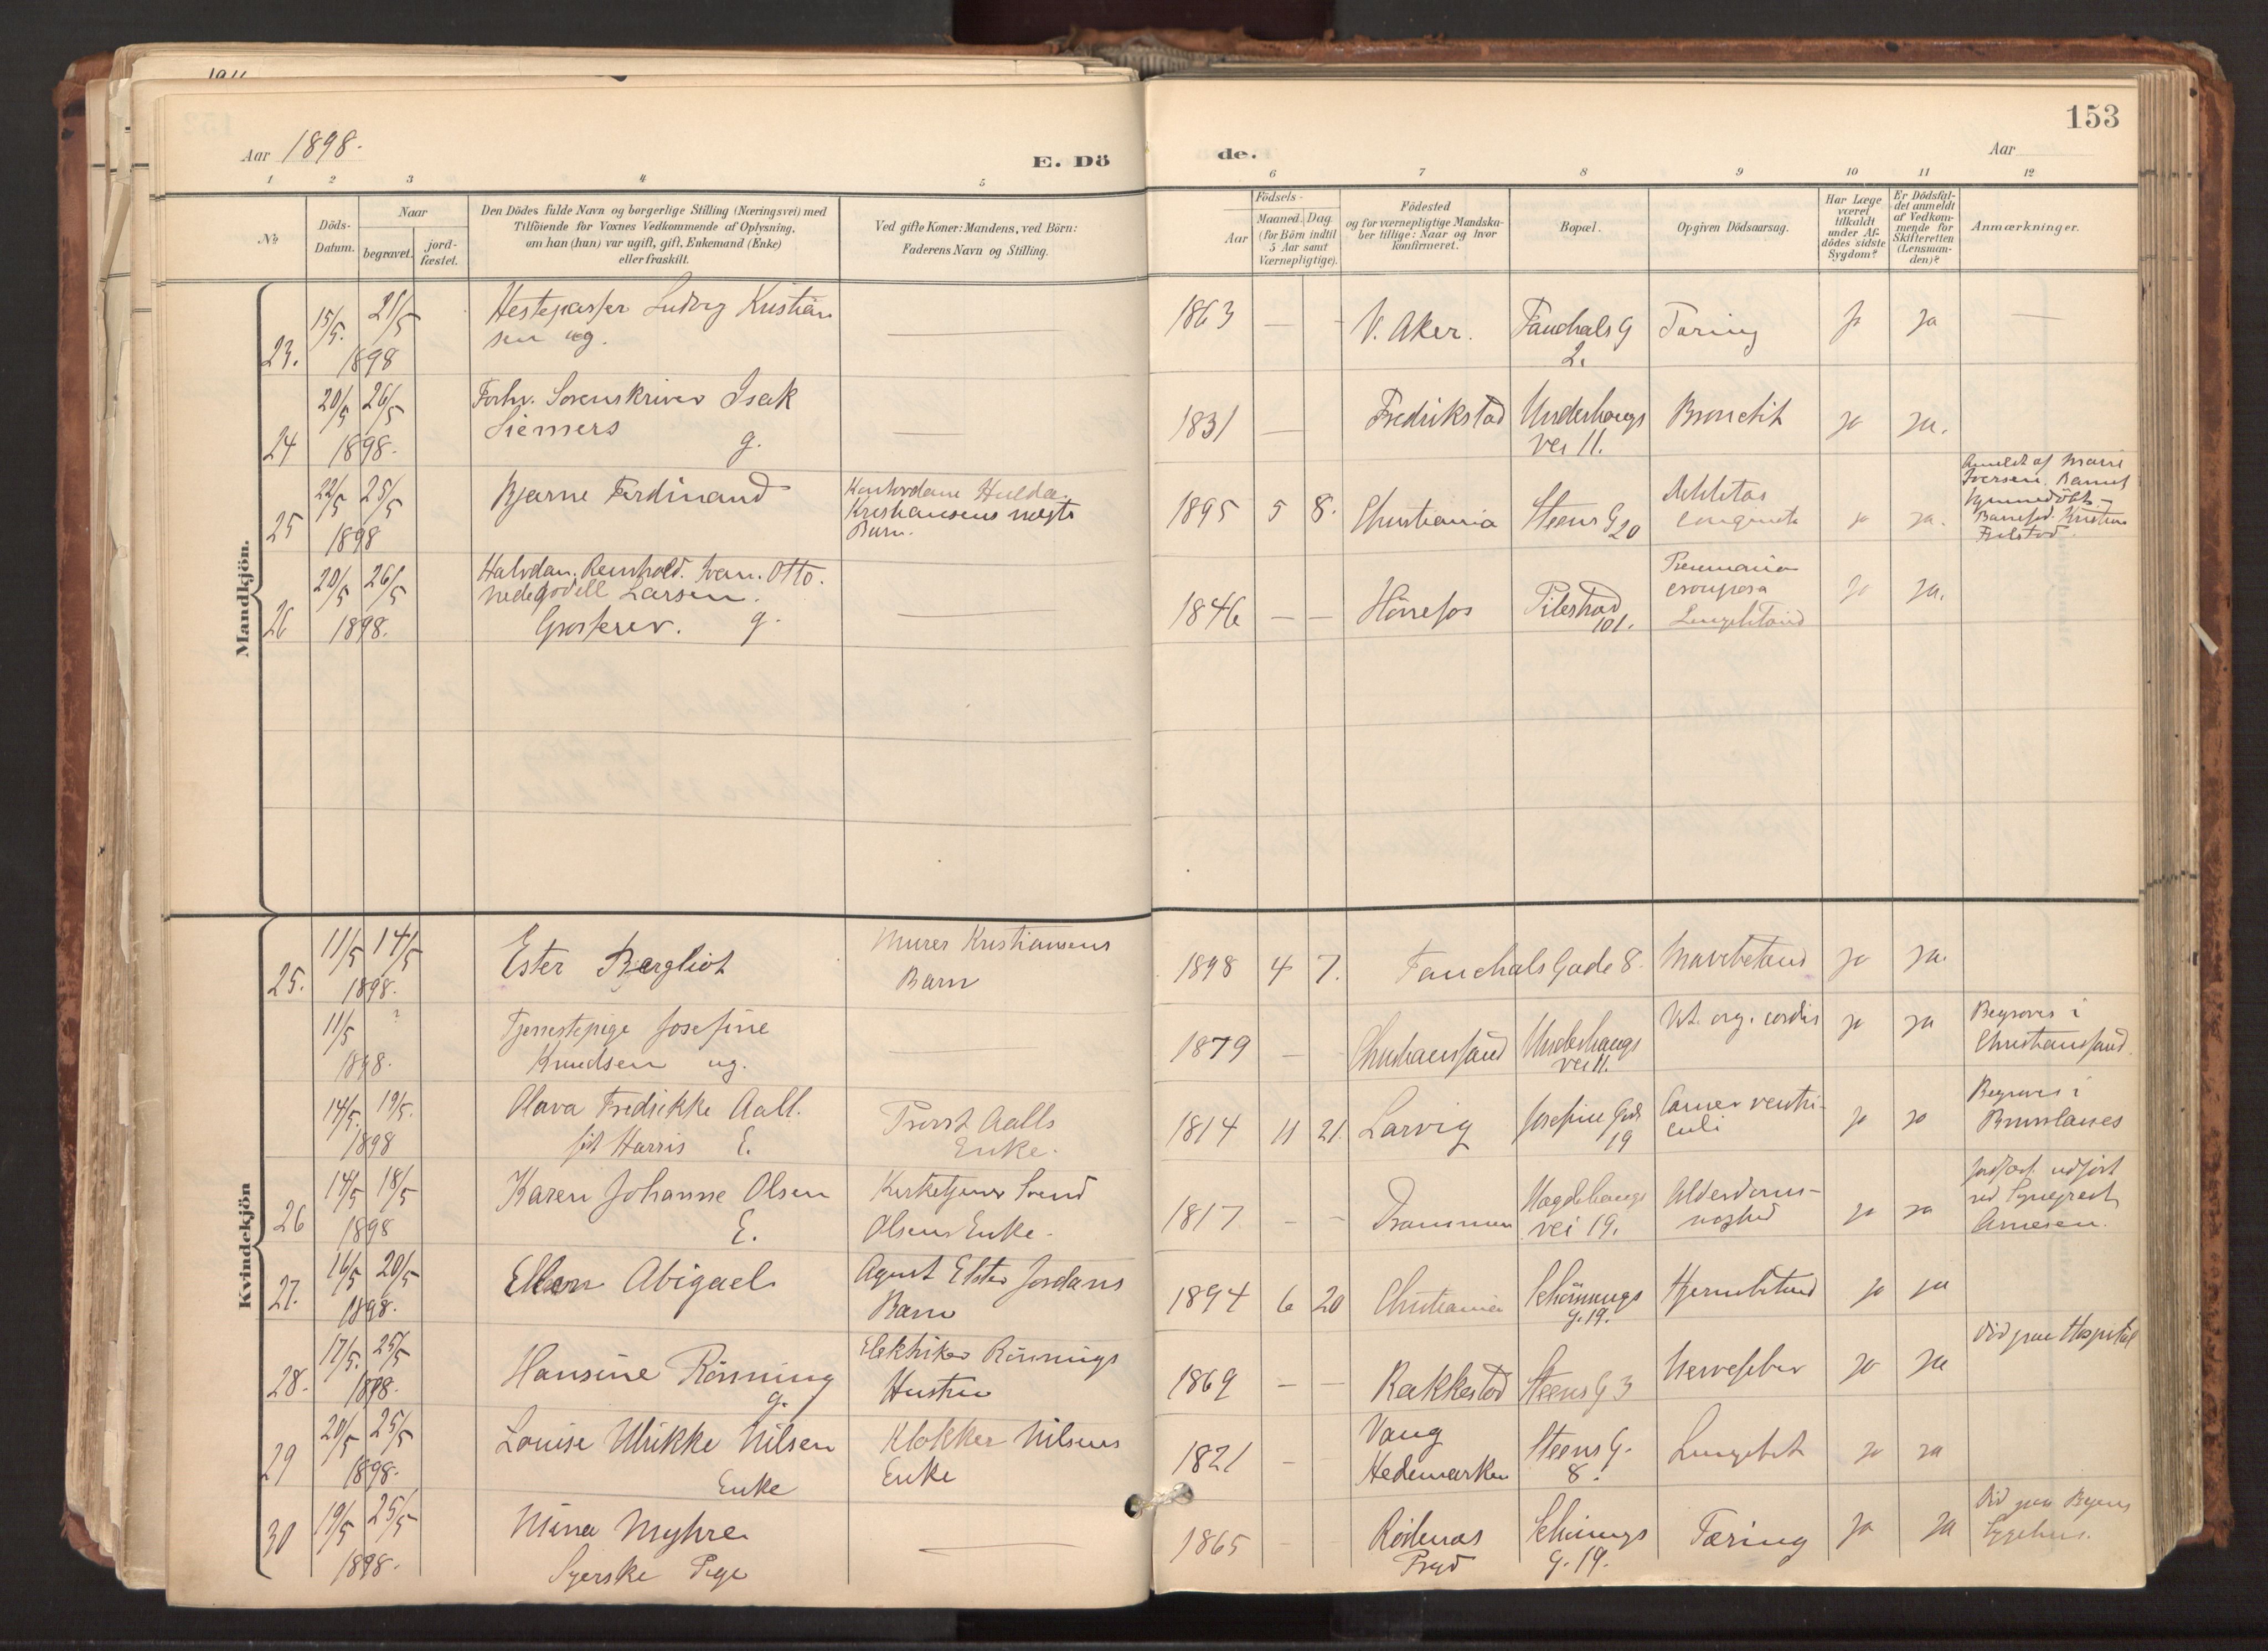 153
Aar 1898.
E. Dö
de.
Aar
1 2 3 4 5 6 7 8 9 10 11 12
No
Döds-
Datum.
Naar
begravet.
jord-
fæstet.
Den Dödes fulde Navn og borgerlige Stilling (Næringsvei) med
Tilföiende for Voxnes Vedkommende af Oplysning,
om han (hun) var ugift, gift, Enkemand (Enke)
eller fraskilt.
Ved gifte Koner: Mandens, ved Börn:
Faderens Navn og Stilling.
Födsels-
Aar
Maaned. Dag.
(for Börn indtil
5 Aar samt
Værnepligtige).
Födested
og for værnepligtige Mandska-
ber tillige: Naar og hvor
konfirmeret.
Bopæl.
Opgiven Dödsaarsag.
Har Læge
været
tilkaldt
under Af-
dödes sidste
Sygdom?
Er Dödsfal-
det anmeldt
af Vedkom-
mende for
Skifteretten
(Lensman-
den)?
Anmærkninger.
Mandkjön.
23. 15/5. 21/5 1898
Hestepasser Ludvig Kristian
sen ug.
1863 — V. Aker. Fauchals G
2.
Tæring ja ja —
24 20/5 26/5 1898.
Forhv. Sorenskriver Isak
Siemers g.
1831 — Fredrikstad Underhaugs
vei 11.
Bronchit ja ja.
25 22/5 25/5 1898
Bjarne Ferdinand
Hulda
Kristiansens uægte
Barn.
1895 5 8. Christiania Steens G 20
ja ja.
Anmeldt af Marie
Iversen.
26 20/5 26/5 1898.
Halvdan. Reinhold. Ivan. Otto.
Larsen.
Grosserer. g.
1846 — — Hönefos Pilestræd
101.
ja ja.
Kvindekjön
25. 11/5 14/5 1898.
Ester Bergliot
Murer Kristiansens
Barn
1898 4 7. Fauchals Gade 8. Mavebetænd ja ja.
11/5 ? 1898.
Tjenestepige Josefine
Knudsen ug.
1879 — Christianssand Underhaugs
vei 11.
Vit. org. cordis ja ja
Begraves i
Christianssand.
14/5. 19/5. 1898
Olava Fredrikke Aall.
föt Harris E.
Provst Aalls
Enke.
1814 11 21. Larvig Josefine Gade
19
Cancer ventri-
culi
ja ja
Begraves i
Brunlanes
26 14/5 18/5 1898
Karen Johanne Olsen
E.
Kirketjener Svend
Olsens Enke.
1817 — — Drammen Hægdehaugs
vei 19.
Alderdoms-
svaghed
ja ja
Jordfæst. udfört
ved Sogneprest
Arnesen.
27. 16/5 20/5 1898.
Ellen Abigael
Agent Elster Jordans
Barn
1894 6 20 Christiania Schönnings
g. 19.
Hjernebetænd ja ja
28. 17/5. 25/5 1898.
Hansine Rönning
g.
Elektriker Rönnings
Hustru
1869 — — Rakkestad Steens G 3
Nervefeber ja ja
Död paa Hospital
29 20/5 25/5 1898.
Louise Ulrikke Nilsen
Enke
Klokker Nilsens
Enke
1821 — Vang
Hedemarken
Steens G.
8.
Lungebet ja ja
30 19/5 25/5 1898.
Mina Myhre
Syerske Pige
1865 — Rödenæs
Prgd
Schönings
g. 19.
Tæring ja ja
Död paa Byens
Sygehus.